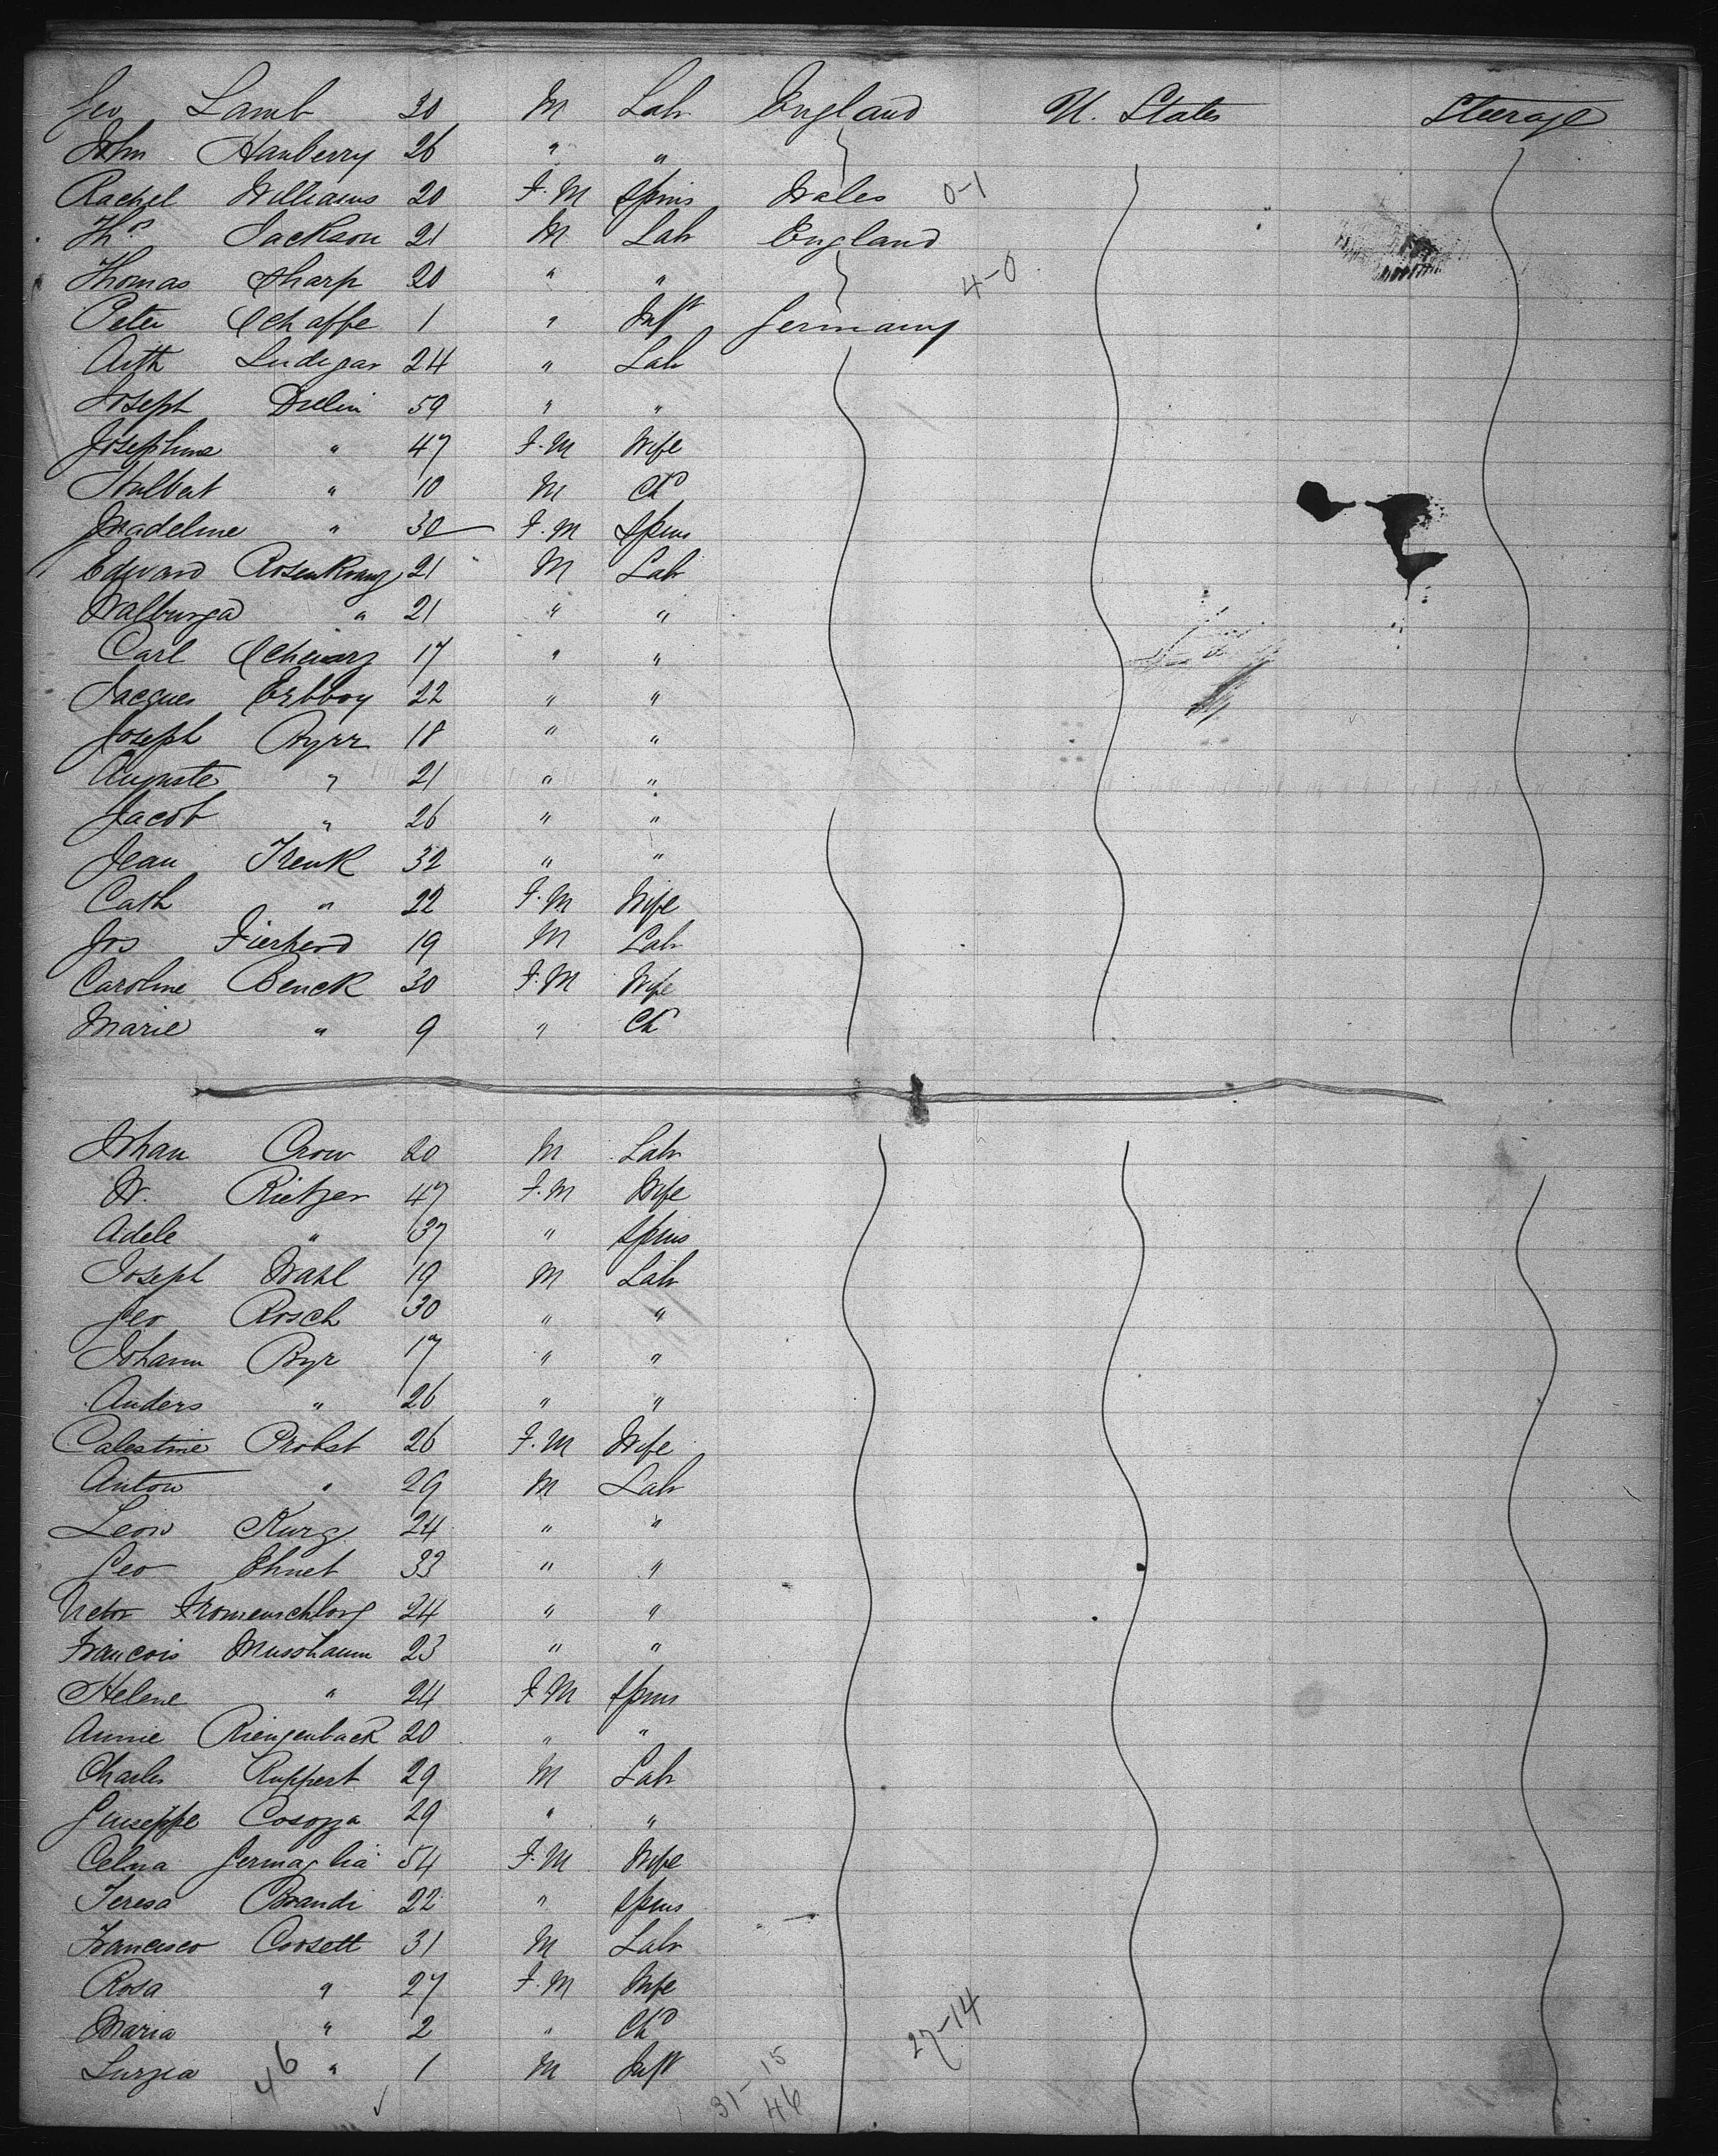 Geo Lamb 30 M Lab England U. States Steerage
John Hanberry 26 " "
Rachel Williams 20 F.M Spins Wales 0-1
Thos Jackson 21 M Lab England
Thomas Sharp 20 " " 4-0
Peter Schaffe 1 " Inft Germany
Arth Ludigar 24 " Lab
Joseph Drelin 59 " "
Josephine " 47 F.M Wife
Hulbert " 10 M Chd
Madeline " 30 F.M Spins
Edward Rosenkranz 21 M Lab
Walburga " 21 " "
Carl Schwarz 17 " "
Jacques Erbboy 22 " "
Joseph Byrr 18 " "
Auguste " 21 " "
Jacob " 26 " "
Jean Trenk 32 " "
Cath " 22 F.M Wife
Jos Fierherd 19 M Lab
Caroline Benck 30 F.M Wife
Marie " 9 " Chd
Johan Crow 20 M Lab
W. Rietzer 47 F.M Wife
Adele " 37 " Spins
Joseph Wahl 19 M Lab
Geo Rosch 30 " "
Johann Byr 17 " "
Anders " 26 " "
Calestine Probst 26 F.M Wife
Anton " 29 M Lab
Leon Kurz 24 " "
Geo Ehnet 33 " "
Victor 24 " "
Francois Mussbaum 23 " "
Helene " 24 F.M Spins
Annie Riengenback 20 " "
Charles Ruppert 29 M Lab
Giuseppe Cosozza 29 " "
Celma Germaglia 54 F.M Wife
Teresa Brandi 22 " Spins
Francisco Corsett 31 M Lab
Rosa " 27 F.M Wife
Maria " 2 " Chd 27-14
Lurzia " 1 M Inft
46 31-15
46